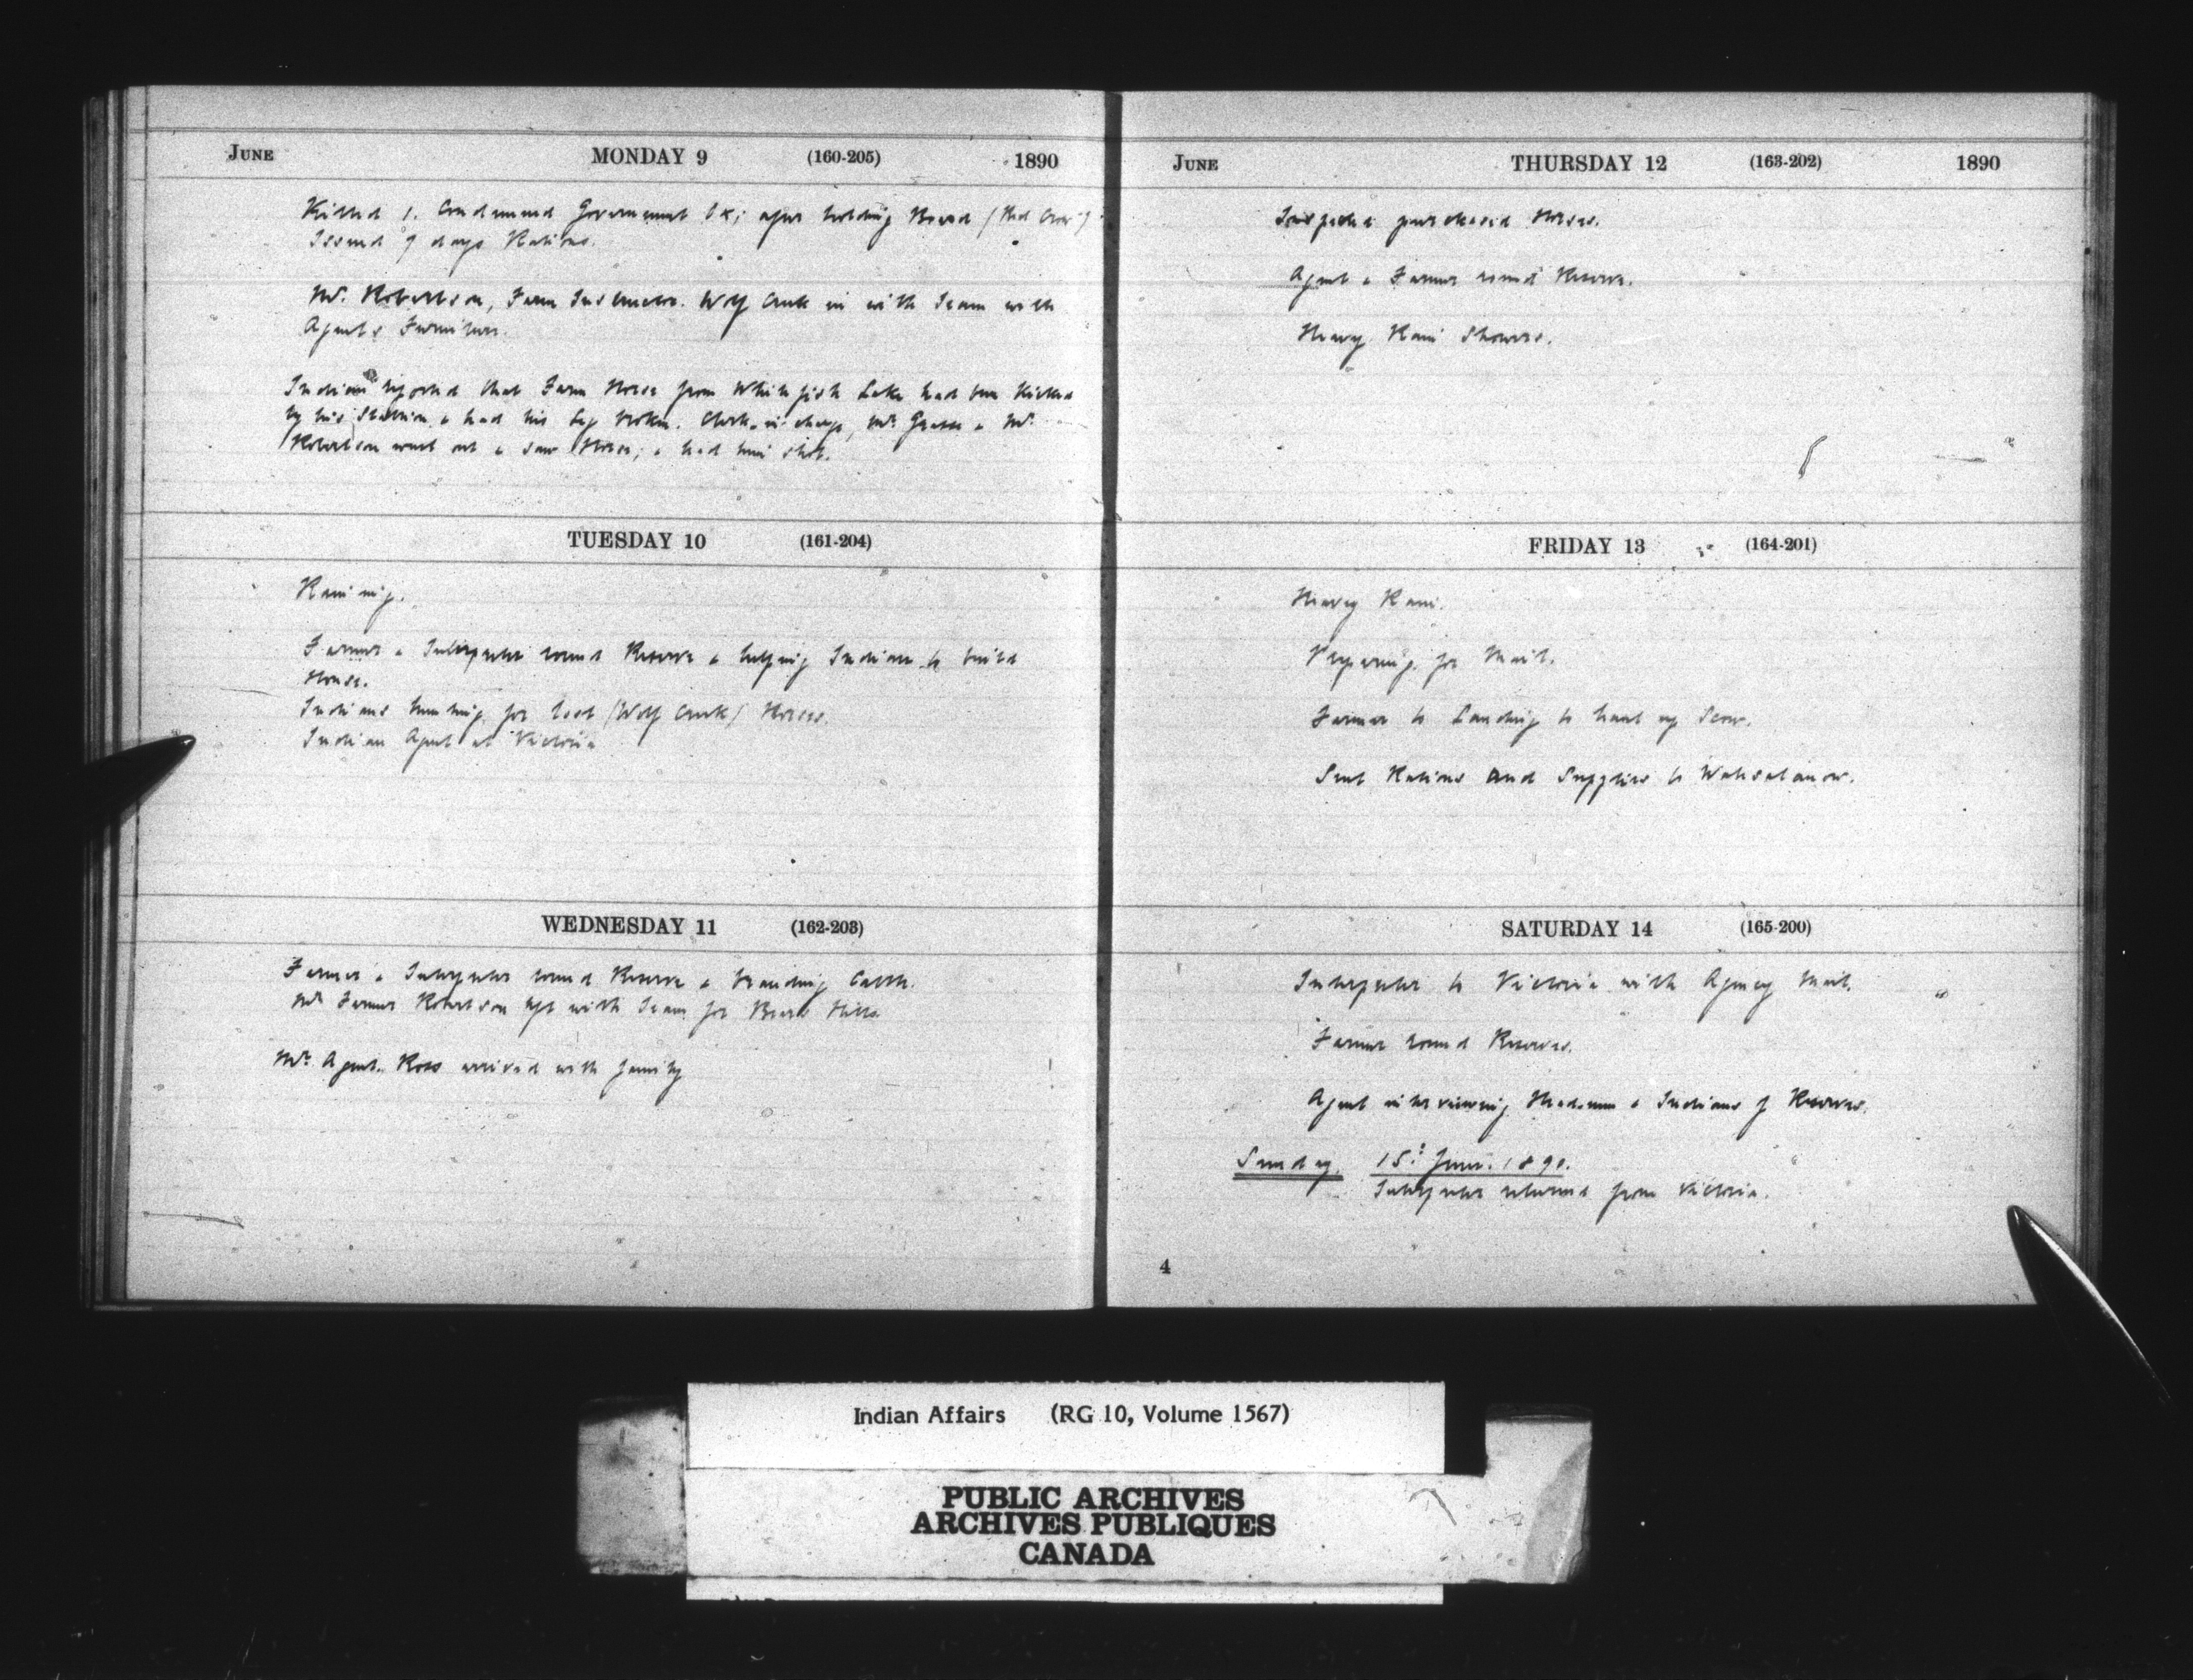 JUNE MONDAY 9 (160-205) 1890
Killed 1. Condemned Government Ox; after holding Board
Issued 7 days Rations.
Mr. Robertson, Farm Instructor. Wolf Creek in with Team with
Agents Furniture.
Indian reported that Farm Horse from Whitefish Lake had been Kicked
by his Stallion & had his leg broken. Clerk in charge, Mr. & Mr.
Robertson went out & saw Horse; & had him shot.
TUESDAY 10 (161-204)
Raining.
Farmer & Interpreter round Reserve & helping Indian to build
House.
Indians hunting for lost (Wolf Creek) Horses.
Indian Agent at Victoria
WEDNESDAY 11 (162-203)
Farmer & Interpreter round Reserve & branding Cattle.
Mr. Farmer Robertson left with Team for Bears Hills.
Mr. Agent. Ross arrived with family
JUNE THURSDAY 12 (163-202) 1890
Inspected purchased Horses.
Agent & Farmer round Reserve.
Heavy Rain Showers.
FRIDAY 13 (164-201)
Heavy Rain.
Preparing for Mail.
Farmer to Landing to haul up Scow.
Sent Rations and Supplies to Wahsatanow.
SATURDAY 14 (165-200)
Interpreter to Victoria with Agency Mail.
Farmer round Reserves.
Agent interviewing Headmen & Indians of Reserves.
Sunday. 15: June. 1890.
Interpreter returned from Victoria.
4
Indian Affairs (RG 10, Volume 1567)
PUBLIC ARCHIVES
ARCHIVES PUBLIQUES
CANADA